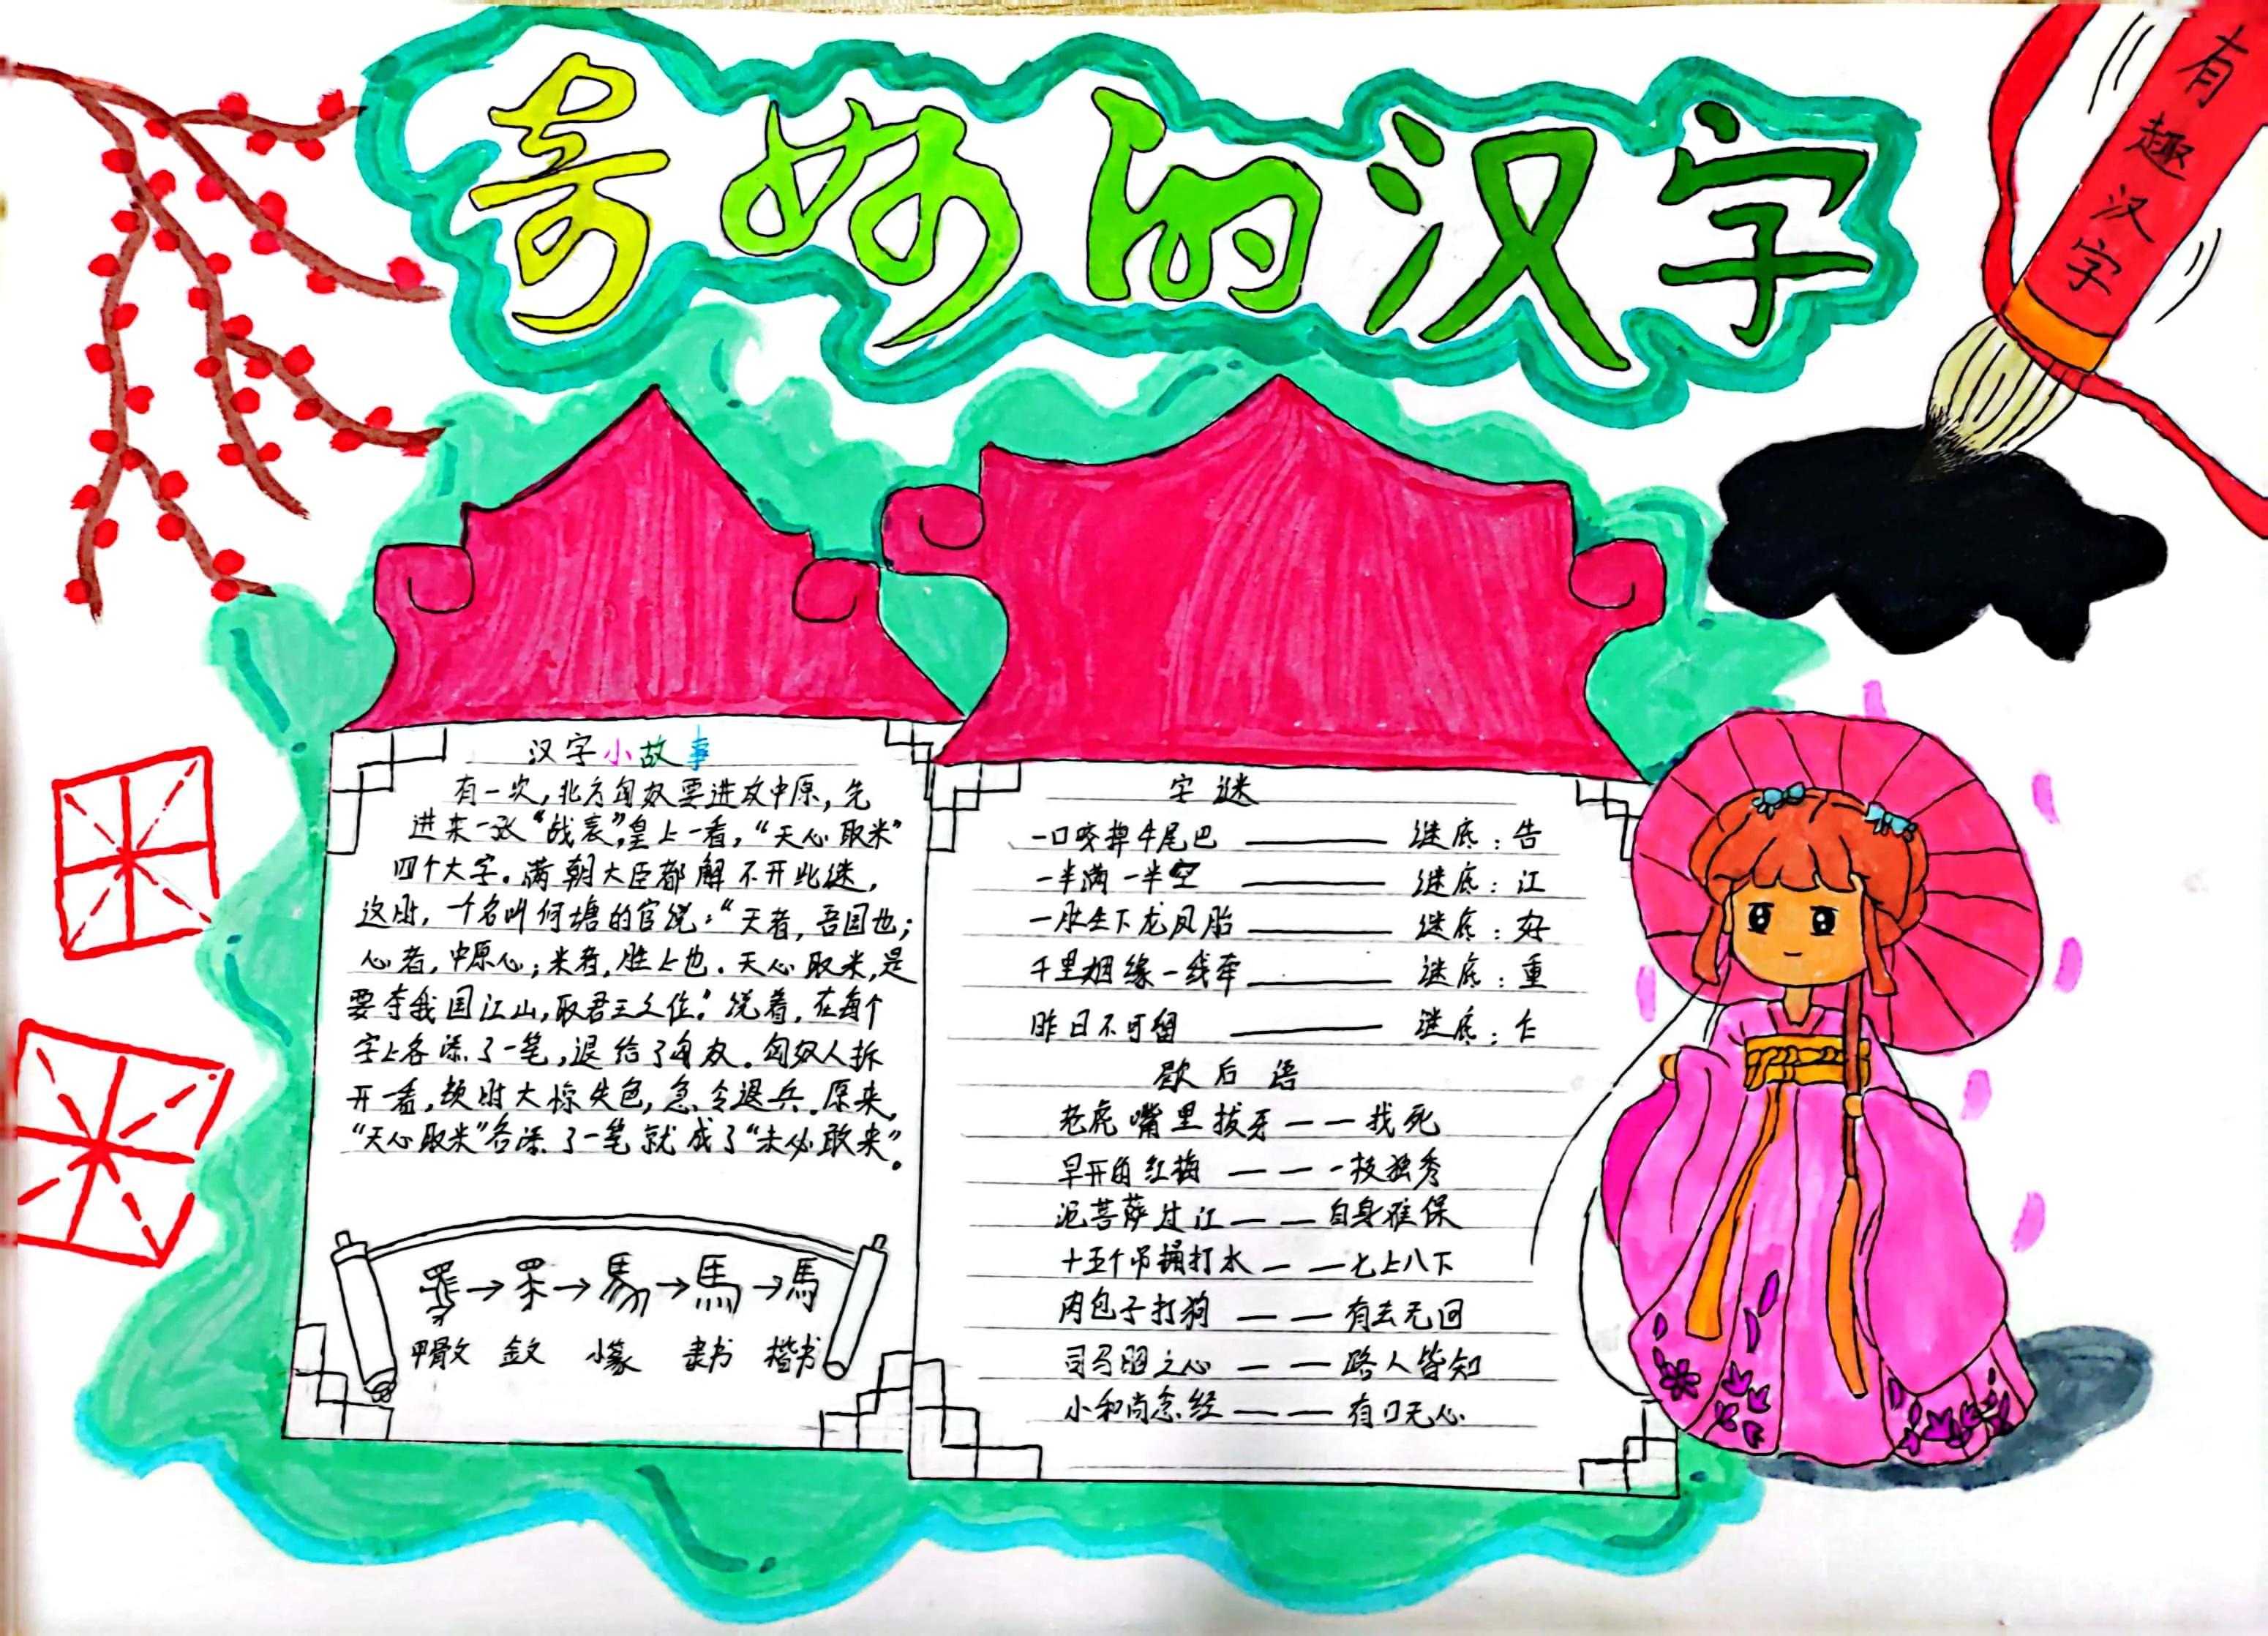 奇妙的汉字
有趣汉字
汉字小故事
有一次,北方匈奴要进攻中原,先
进来一张“战表”,皇上一看,“天心取米”
四个大字。满朝大臣都解不开此谜,
这时,一个名叫何塘的官说:“天者,吾国也;
心者,中原心;米者,胜上也.天心取米,是
要夺我国江山,取君王之位。”说着,在每个
字上各添了一笔,退给了匈奴.匈奴人拆
开一看,顿时大惊失色,急令退兵.原来,
“天心取米”各添了一笔就成了“未必敢来”。
甲骨文 金文 小篆 隶书 楷书
字谜
一口咬掉牛尾巴 —— 谜底:告
一半满一半空 —— 谜底:江
一胎生下龙凤胎 —— 谜底:好
千里姻缘一线牵 —— 谜底:重
昨日不可留 —— 谜底:乍
歇后语
老虎嘴里拔牙——找死
早开的红梅——一枝独秀
泥菩萨过江——自身难保
十五个吊桶打水——七上八下
肉包子打狗——有去无回
司马昭之心——路人皆知
小和尚念经——有口无心